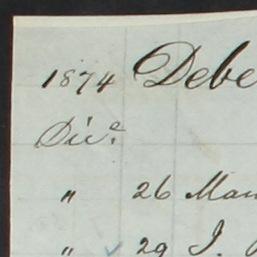 1874 Debe
Dice
" 26 Man
" 29 J.